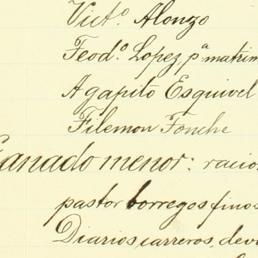 Victº. Alonzo
Feodº. Lopez pª matrim
Agapito Esquivel
Filemon Fonche
Ganado menor: racio
pastor borregos finos
Diarios carreros, dev